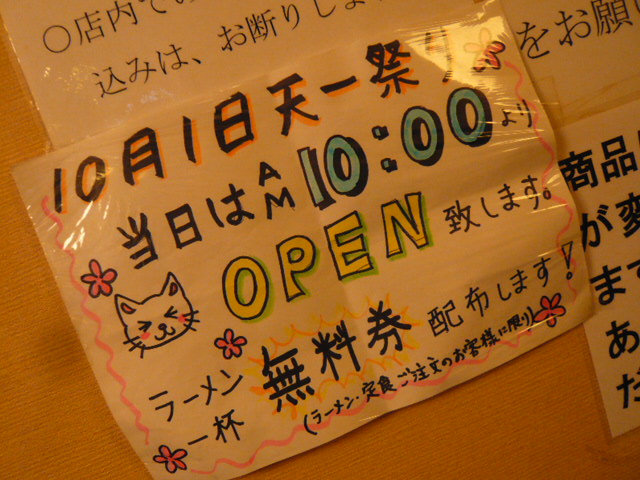 ○店内での
込みは、お断りしま
をお願い
10月1日天一祭り
当日はAM10:00より
OPEN致します。
ラーメン一杯 無料券 配布します!
(ラーメン・定食ご注文のお客様に限り)
商品
が変
まで
あ
だ